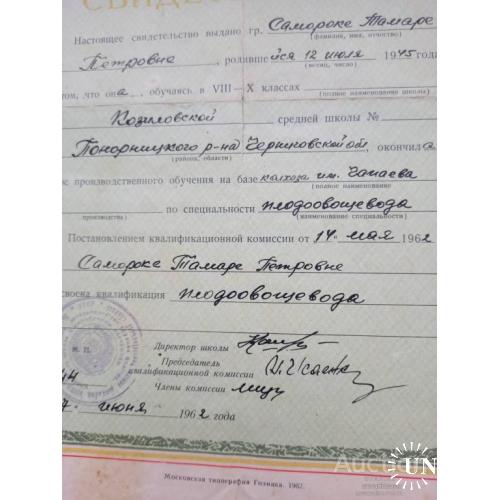 СВИДЕ
Настоящее свидетельство выдано гр. Самороке Тамаре
(фамилия, имя, отчество)
Петровне, родившейся 12 июля 1945 года
(месяц, число)
том, что она, обучаясь в VIII—X классах
(полное наименование школы)
Козловской средней школы №
Понорницкого р-на Черниговской об., окончила
(района, области)
с производственного обучения на базе колхоза им. Чапаева
(полное наименование
производства) по специальности плодоовощевода
(наименование специальности)
Постановлением квалификационной комиссии от 14 мая 1962
Самороке Тамаре Петровне
своена квалификация плодоовощевода
М. П.
Директор школы
Председатель
квалификационной комиссии
Члены комиссии
7 июня 1962 года
Московская типография Гознака. 1962.
UN